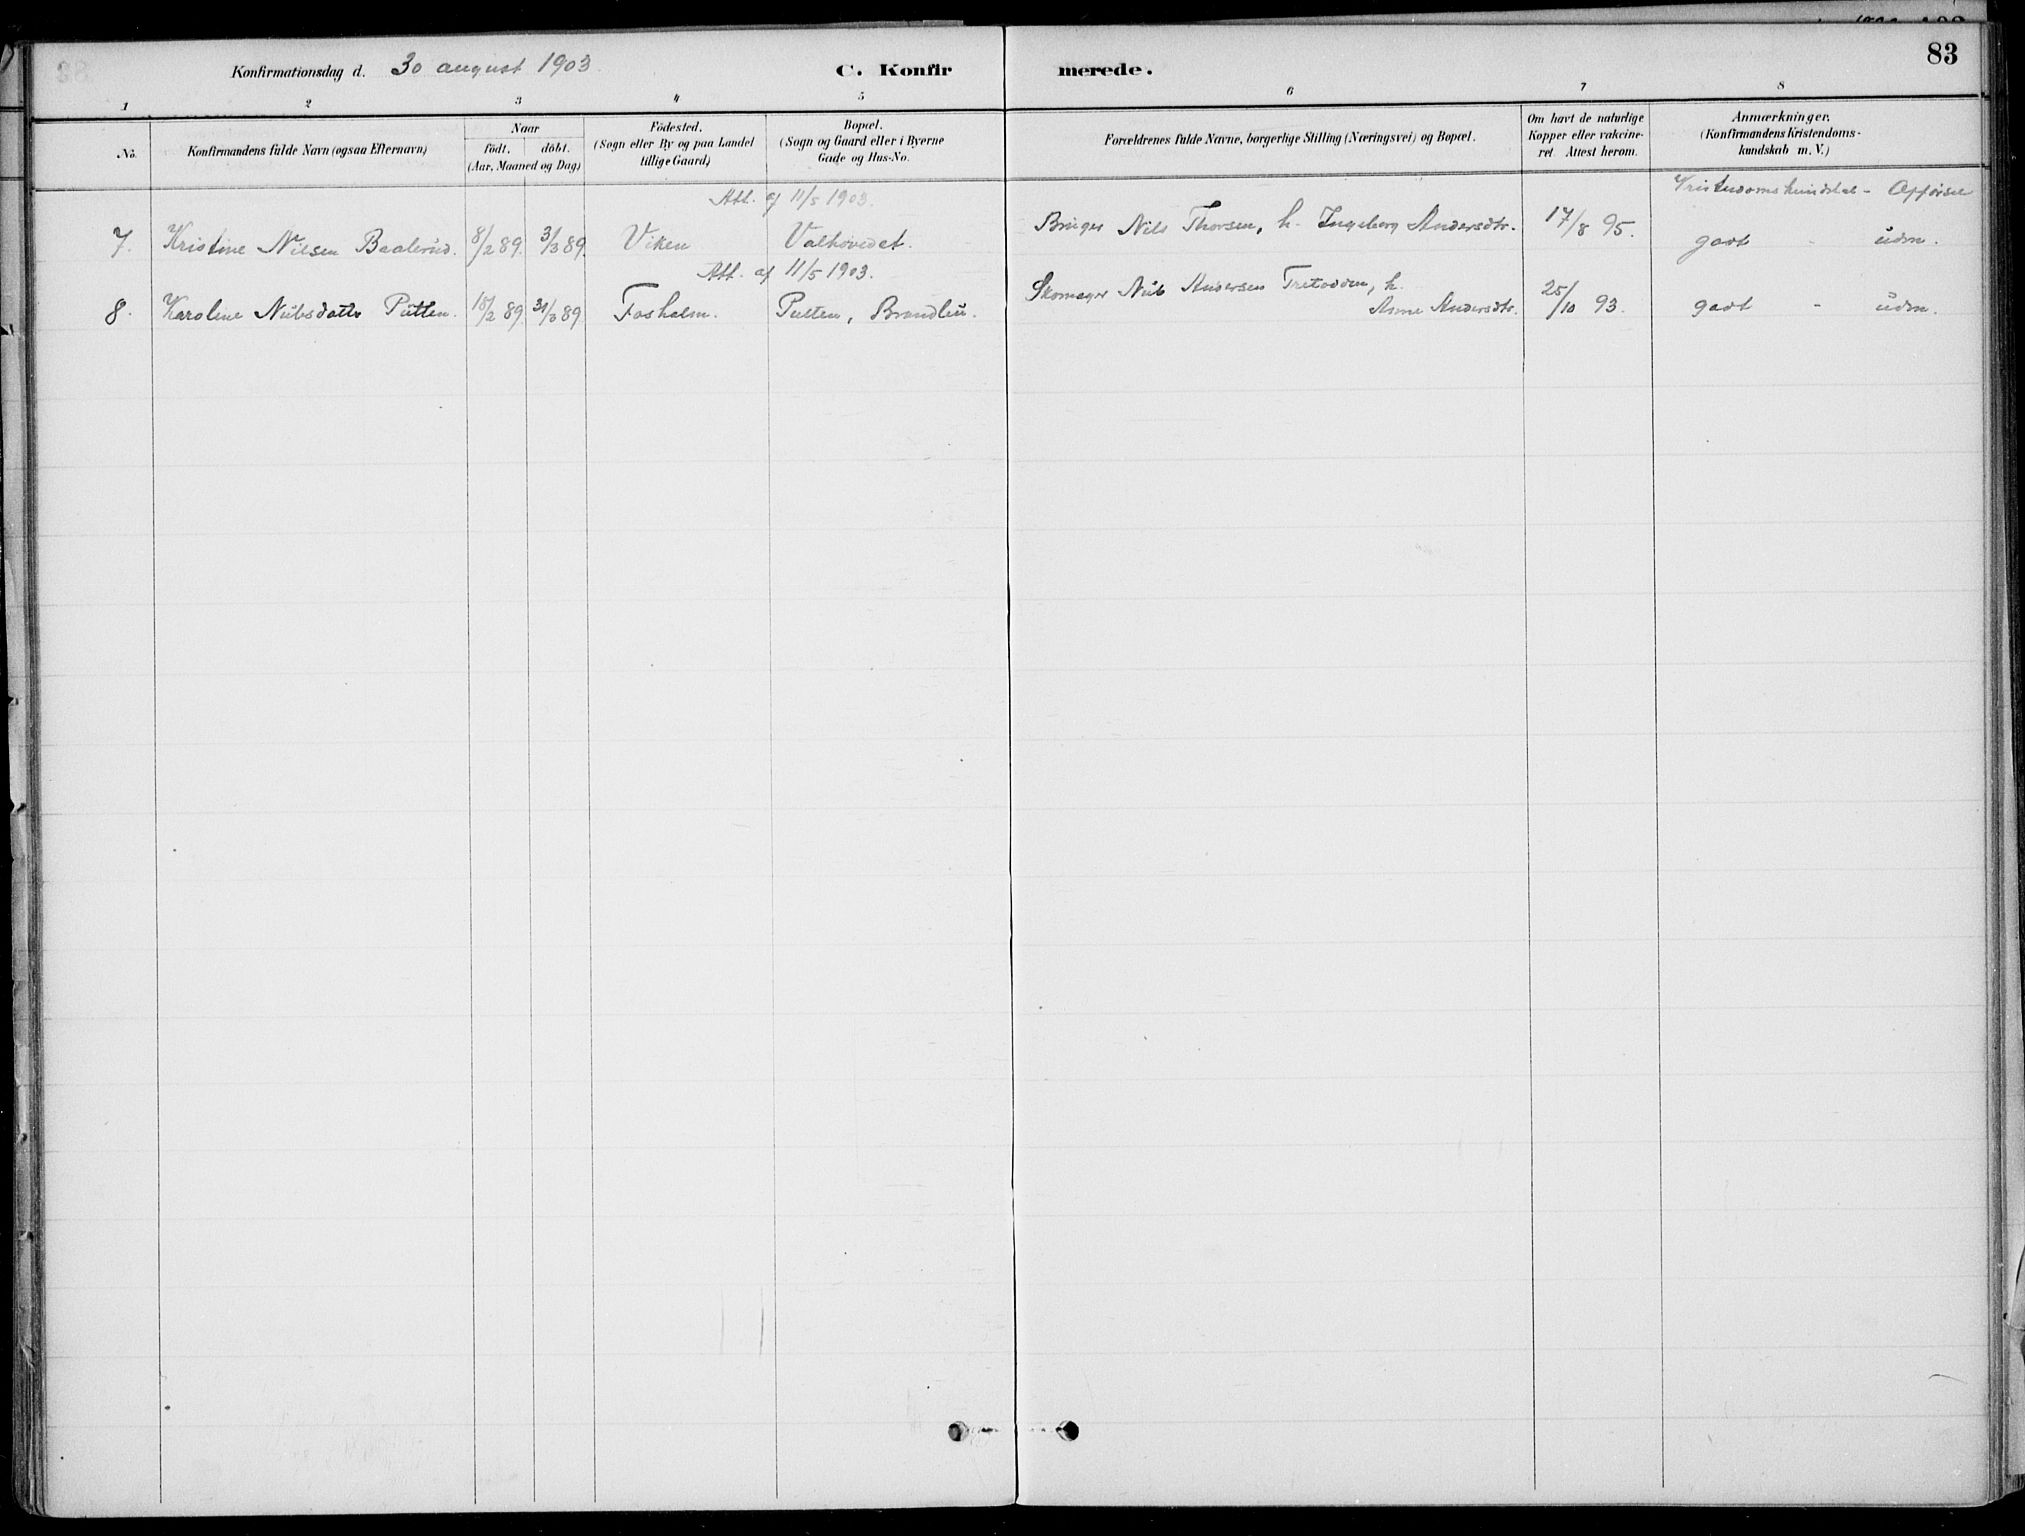 83
Konfirmationsdag d. 30 august 1903. C. Konfirmerede.
1 2 3 4 5 6 7 8
No. Konfirmandens fulde Navn (ogsaa Efternavn) Naar født. døbt. (Aar, Maaned og Dag) Fødested. (Sogn eller By og paa Landet tillige Gaard) Bopæl. (Sogn og Gaard eller i Byerne Gade og Hus-No. Forældrenes fulde Navne, borgerlige Stilling (Næringsvei) og Bopæl. Om havt de naturlige Kopper eller vakcineret. Attest herom. Anmærkninger. (Konfirmandens Kristendomskundskab m. V.)
Att. af 11/5 1903. Kristendomskundskab - Opførsel
7. Kristine Nilsen Baalerud. 8/2 89. 31/3 89. Viken Valhovedet. Bruger Nils Thorsen, h. Ingeborg Andersdtr. 17/8 95. godt - üdm.
Att. af 11/5 1903.
8. Karoline Nilsdatter Pütten. 18/2 89. 31/3 89 Fosholm. Putten, Brandlia. Skomager Nils Andersen Tretodden, h.
Anne Andersdtr. 25/10 93. godt - üdm.